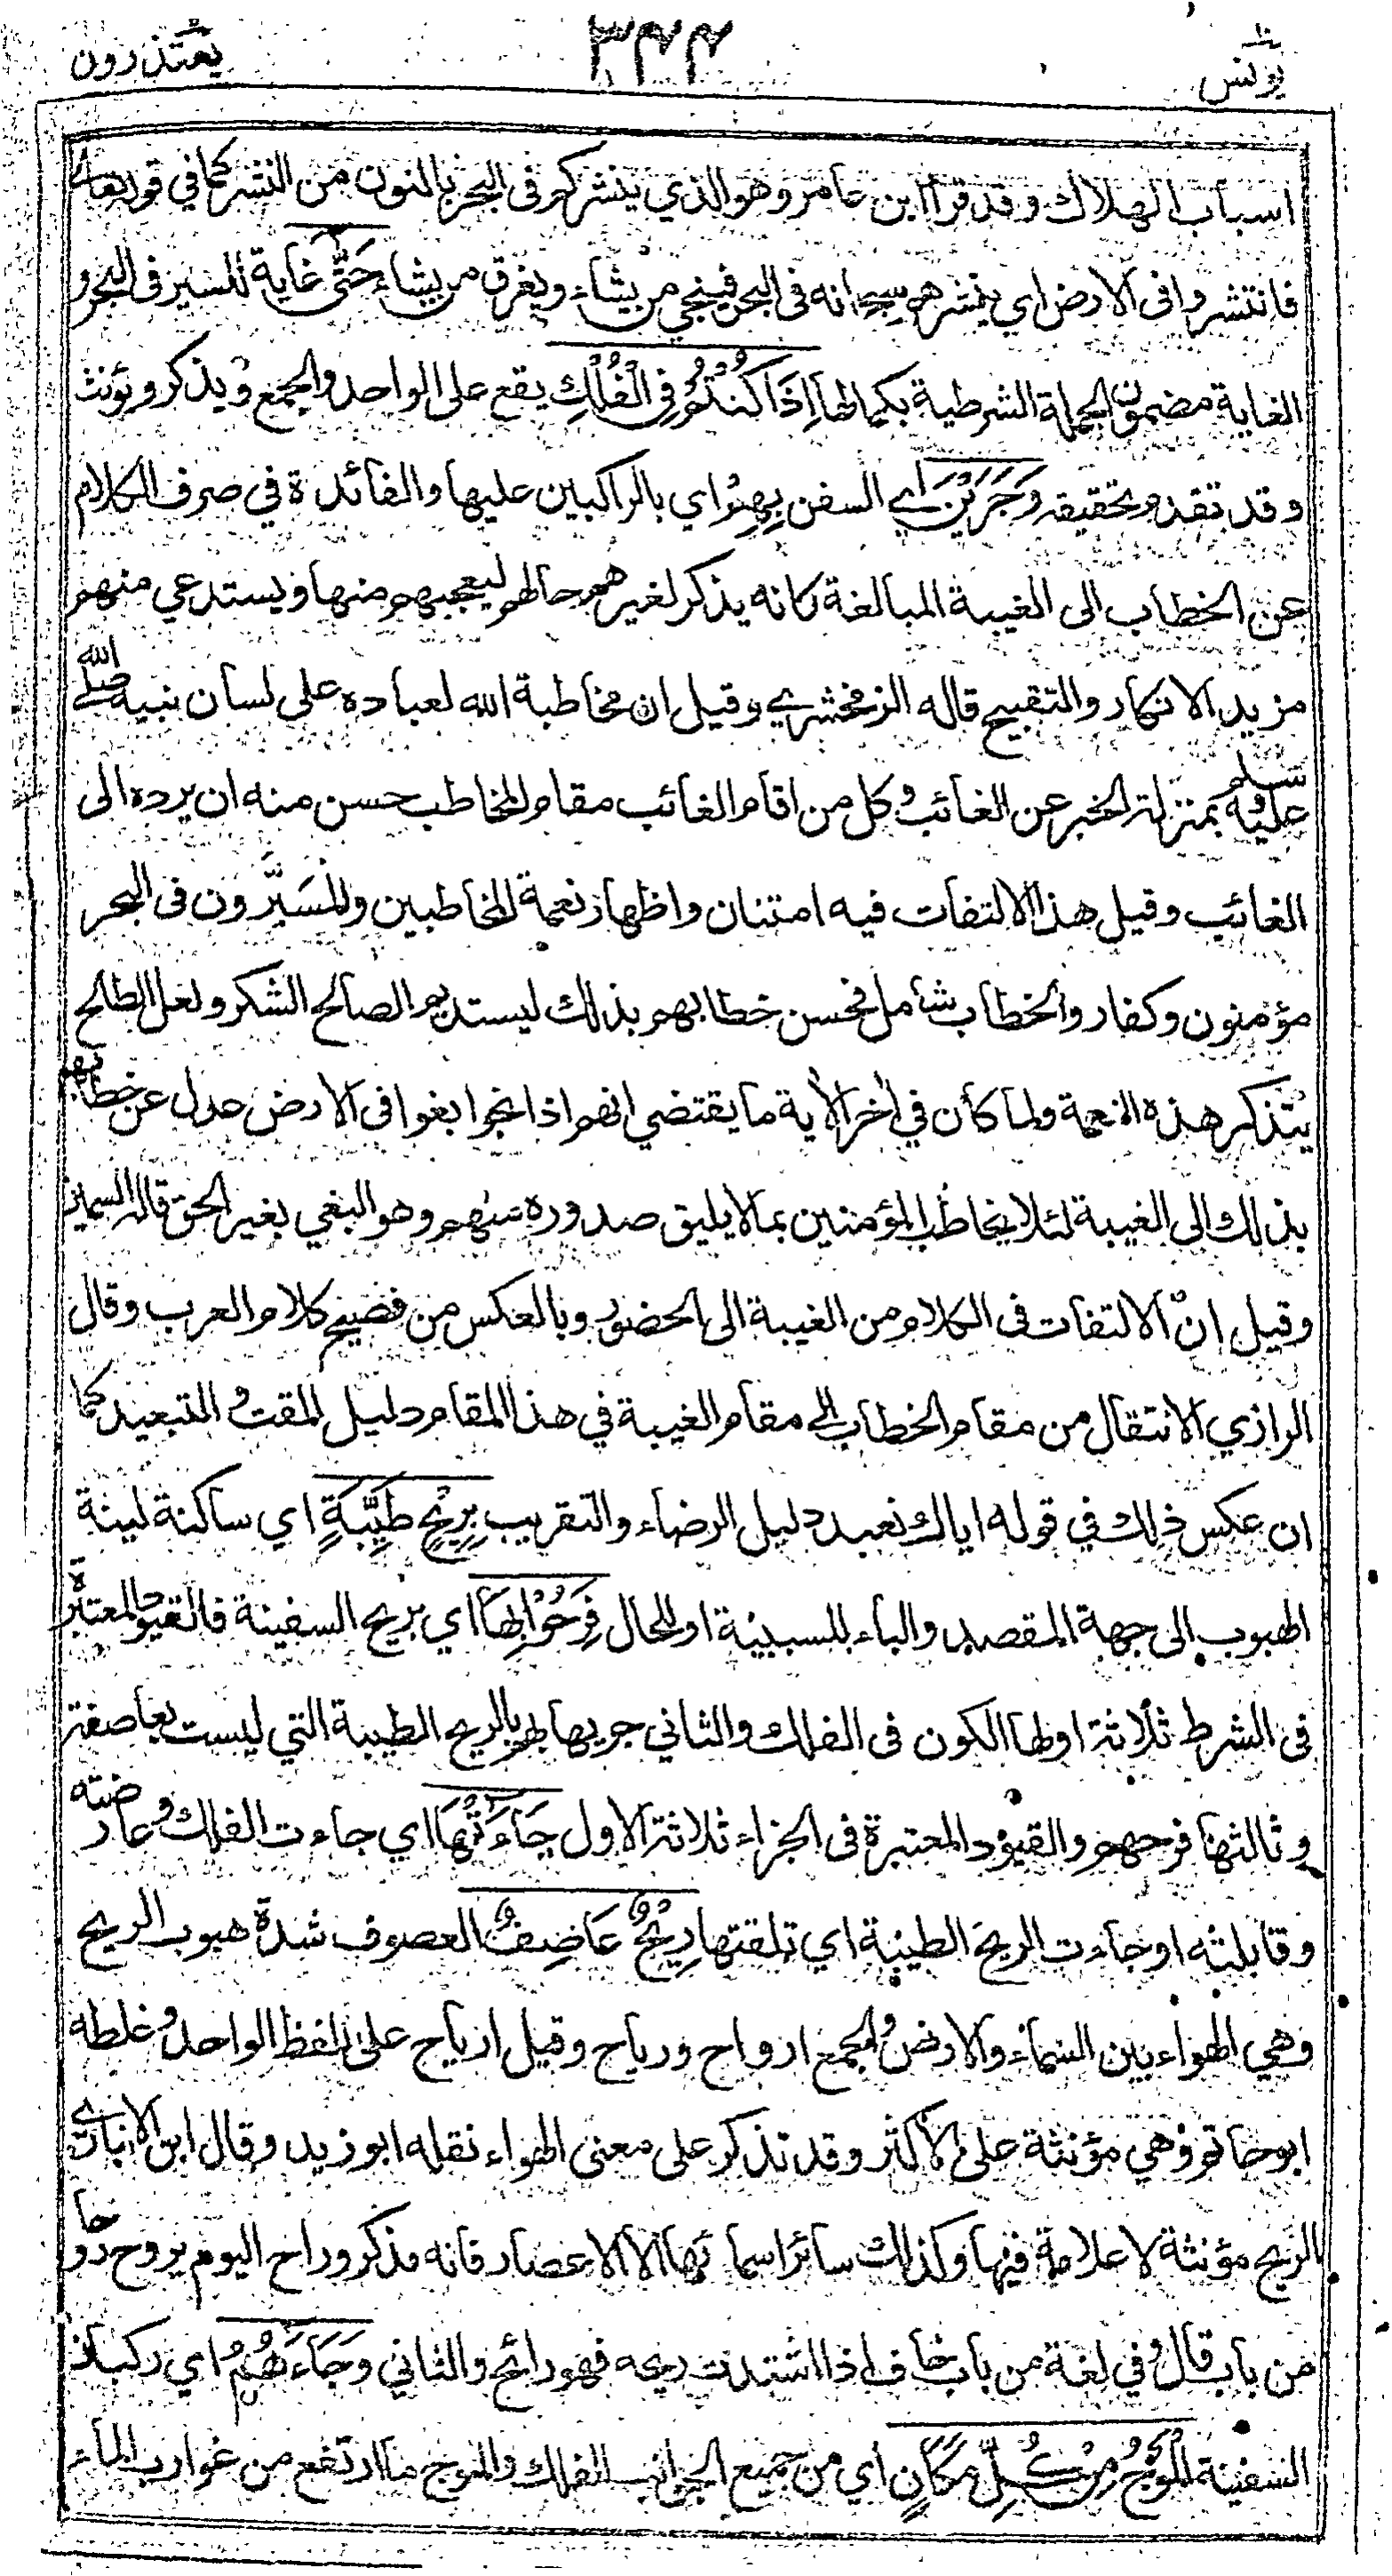 يونس ١٠
٣٤٤
يعتذرون
اسباب الهلاك وقد قرأ ابن عامر وهو الذي ينشركم فى البحر بالنون من النشر كما في قوله تعالى
فانتشروا فى الارض اي ينشرهم سبحانه فى البحر فينجي من يشاء ويغرق من يشاء حَتَّى غاية للسير فى البحر و
الغاية مضمون الجملة الشرطية بكمالها إِذَا كُنْتُمْ فِى الْفُلْكِ يقع على الواحد والجمع ويذكر ويؤنث
وقد تقدم تحقيقه وَجَرَيْنَ اي السفن بِهِمْ اي بالراكبين عليها والفائدة في صرف الكلام
عن الخطاب الى الغيبة المبالغة كانه يذكر لغيرهم حالهم ليعجبهم منها ويستدعي منهم
مزيد الانكار والتقبيح قاله الزمخشري وقيل ان مخاطبة الله لعباده على لسان نبيه صلى الله
عليه وسلم بمنزلة الخبر عن الغائب وكل من اقام الغائب مقام المخاطب حسن منه ان يرده الى
الغائب وقيل هذا الالتفات فيه امتنان واظهار نعمة للمخاطبين والمسَيَّرون فى البحر
مؤمنون وكفار والخطاب شامل فحسن خطابهم بذلك ليستديم الصالح الشكر ولعل الطالح
يتذكر هذه النعمة ولما كان في أخر الأية ما يقتضي انهم اذا نجوا بغوا فى الارض عدل عن خطابهم
بذلك الى الغيبة لئلا يخاطب المؤمنين بما لا يليق صدوره منهم وهو البغي بغير الحق قاله السمين
وقيل ان الالتفات فى الكلام من الغيبة الى الحضور وبالعكس من فصيح كلام العرب وقال
الرازي الانتقال من مقام الخطاب الى مقام الغيبة في هذا المقام دليل المقت والتبعيد كما
ان عكس ذلك في قوله اياك نعبد دليل الرضاء والتقريب بِرِيْحٍ طَيِّبَةٍ اي ساكنة لينة
الهبوب الى جهة المقصد والباء للسببية او للحال فَرِحُوْا بِهَا اي بريح السفينة فالقيود المعتبرة
فى الشرط ثلاثة اولها الكون فى الفلك والثاني جريها بهم بالريح الطيبة التي ليست بعاصفة
وثالثها فرحهم والقيود المعتبرة فى الجزاء ثلاثة الاول جَاءَتْهَا اي جاءت الفلك وعارضته
وقابلته او جاءت الريح الطيبة اي تلقتها رِيْحٌ عَاصِفٌ العصوف شدة هبوب الريح
وهي الهواء بين السماء والارض والجمع ارواح ورياح وقيل ارياح على لفظ الواحد وغلطه
ابو حاتم وهي مؤنثة على الاكثر وقد تذكر على معنى الهواء نقله ابو زيد وقال ابن الانباري
الريح مؤنثة لا علامة فيها وكذلك سائر اسمائها الا الاعصار فانه مذكر وراح اليوم يروح روحا
من باب قال وفي لغة من باب خاف اذا اشتدت ريحه فهو رائح والثاني وَجَاءَهُمُ اي ركبان
السفينة الْمَوْجُ مِنْ كُلِّ مَكَانٍ اي من جميع الجوانب الفلك والموج ما ارتفع من غوارب الماء